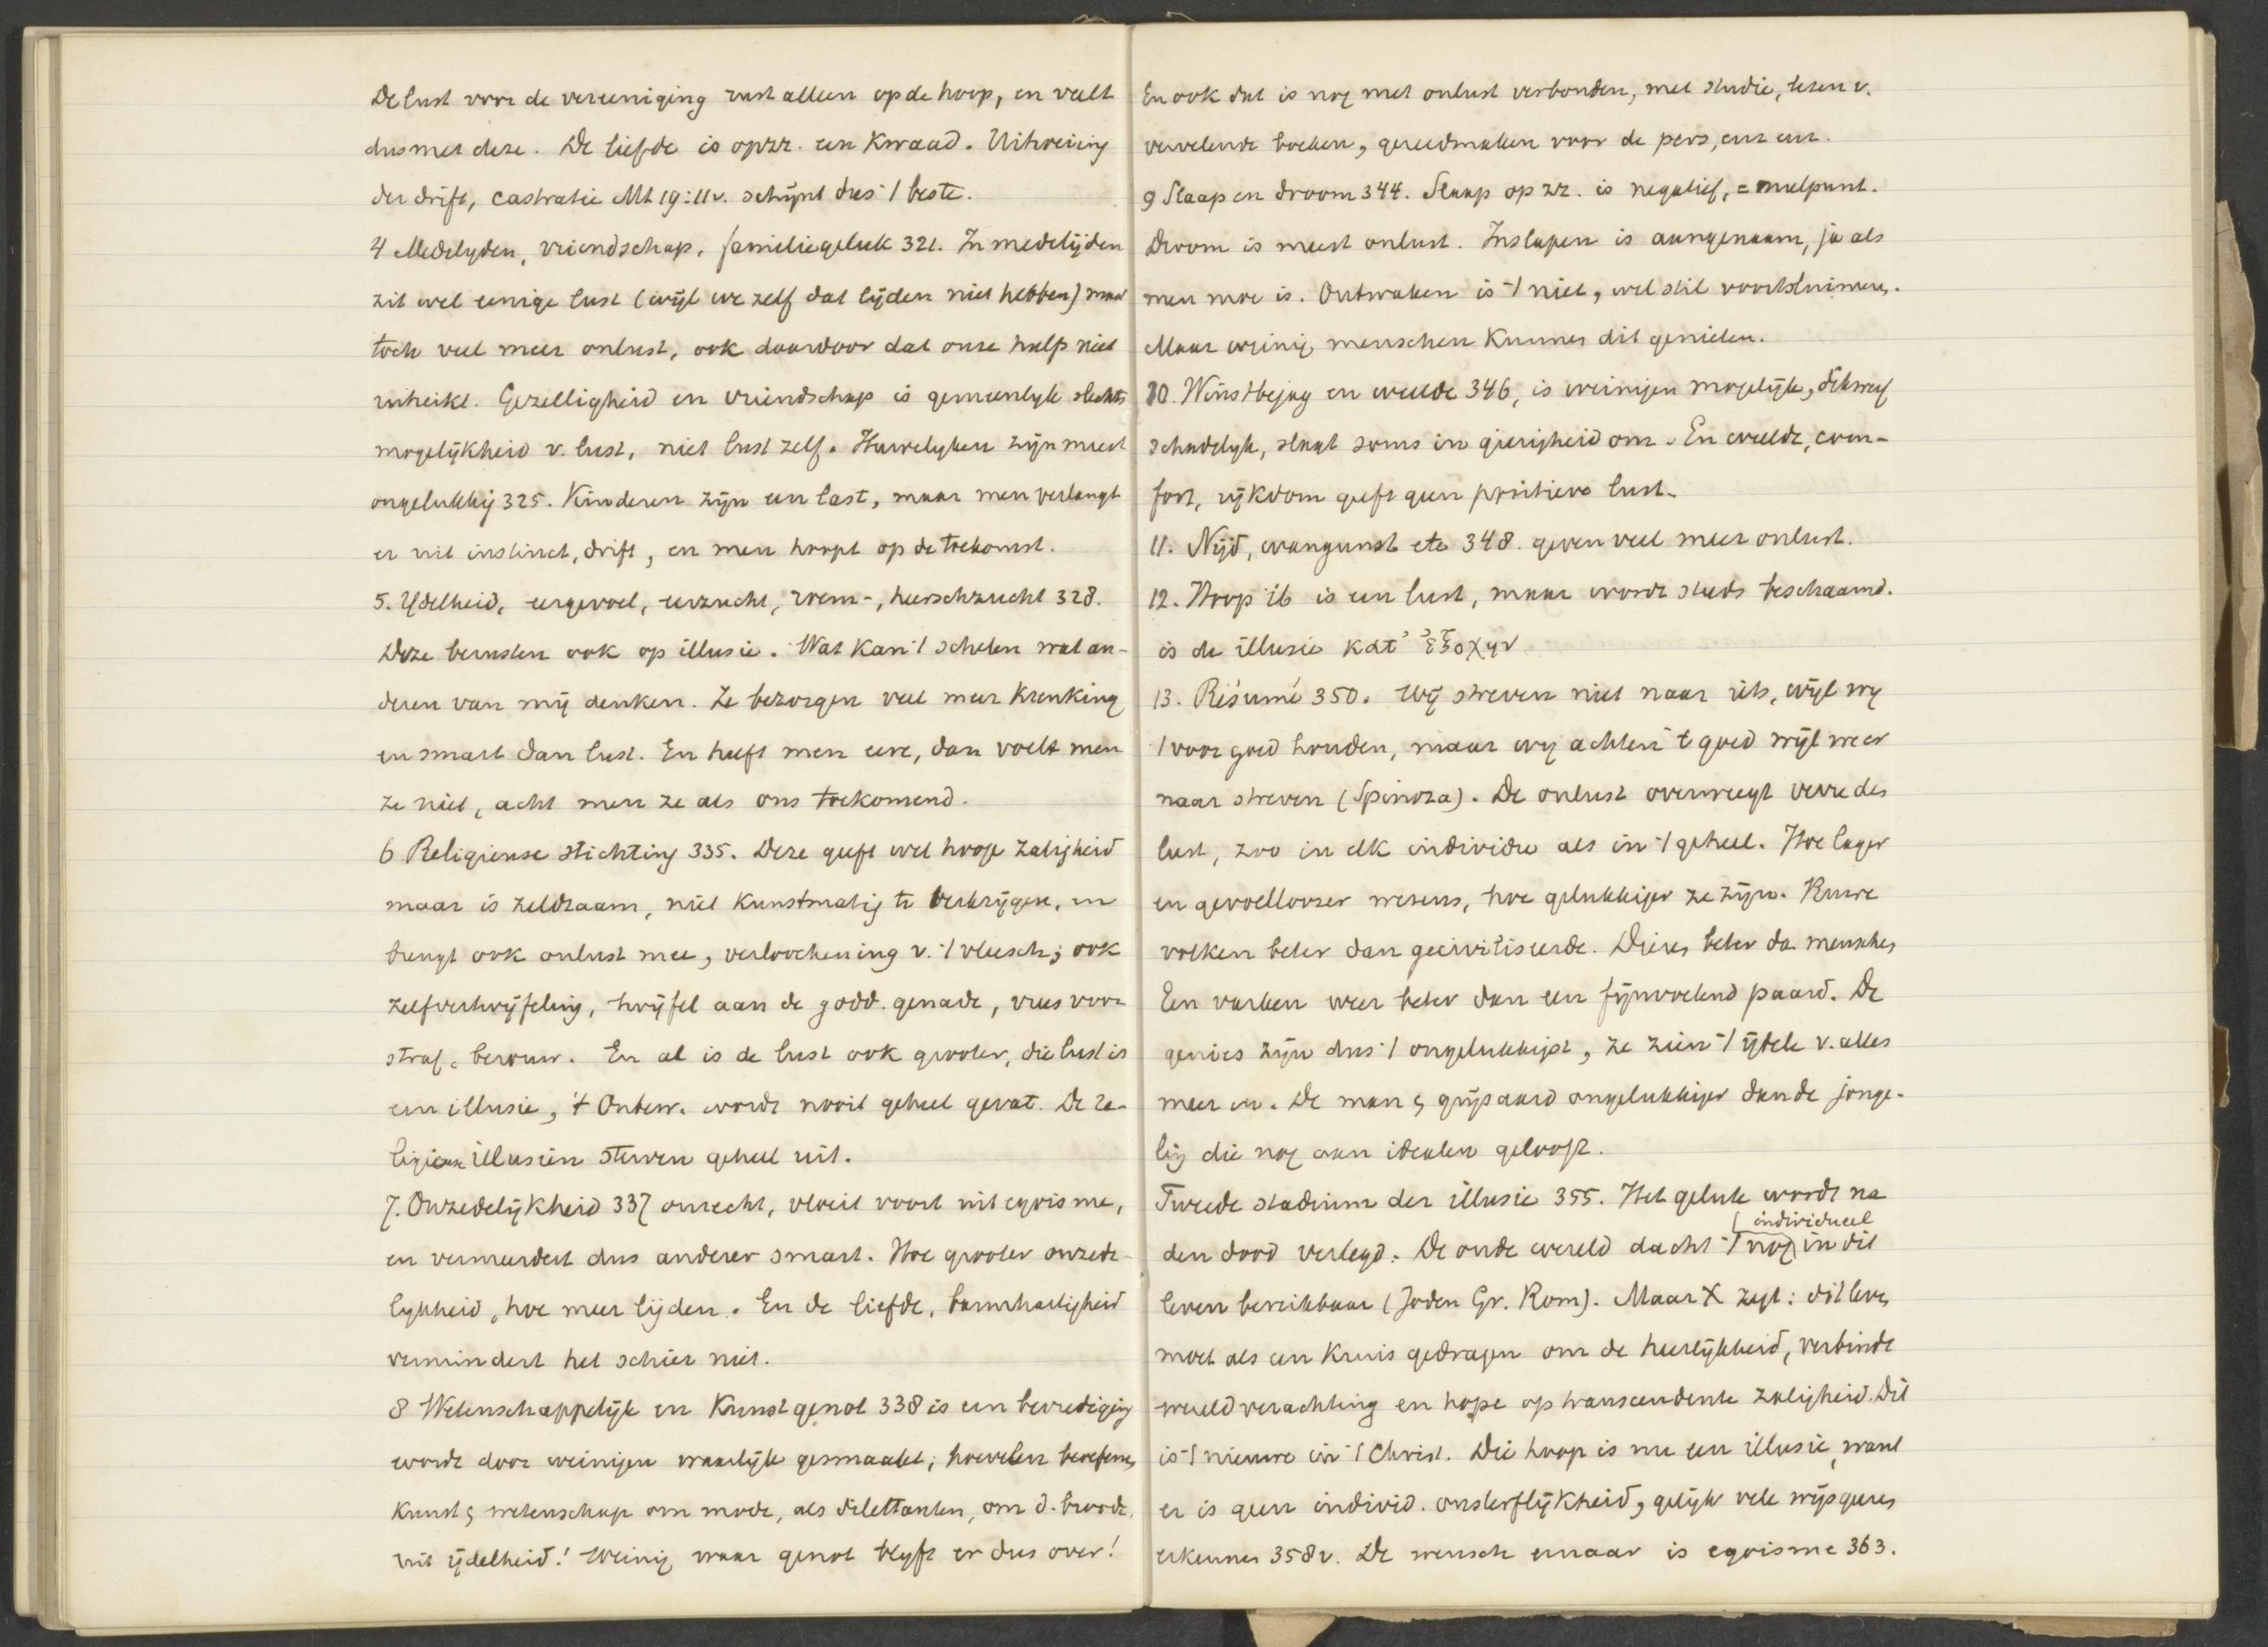 De lust voor de vereeniging rust alleen op de hoop, en valt
dus met deze. De liefde is opzz. een kwaad. Uitroeiing
der drift, castratie Mt 19:11v. schijnt dus 't beste.
4 Medelyden, vriendschap, familiegeluk 321. In medelijden
zit wel eenige lust (wijl we zelf dat lijden niet hebben) maar
toch veel meer onlust, ook daardoor dat onze hulp niet
uitreikt. Gezelligheid en vriendschap is gemeenlyk slechts
mogelijkheid v. lust, niet lust zelf. Huwelyken zijn meest
ongelukkig 325. Kinderen zijn een last, maar men verlangt
er uit instinct, drift, en men hoopt op de toekomst.
5. Ydelheid, eergevoel, eerzucht, roem-, heerschzucht 328.
Deze berusten ook op illusie. Wat kan 't schelen wat an-
deren van mij denken. Ze bezorgen veel meer krenking
en smart dan lust. En heeft men eere, dan voelt men
ze niet, acht men ze als ons toekomend.
6 Religieuse stichting 335. Deze geeft wel hooge zaligheid
maar is zeldzaam, niet kunstmatig te verkrijgen, en
brengt ook onlust mee, verloochening v. 't vleesch; ook
zelfvertwijfeling, twijfel aan de godd. genade, vrees voor
straf, berouw. En al is de lust ook grooter, die lust is
een illusie, 't Onbew. wordt nooit geheel gevat. De re-
ligieuse illusiën sterven geheel uit.
7. Onzedelijkheid 337 onrecht, vloeit voort uit egoisme,
en vermeerdert dus anderer smart. Hoe grooter onzede-
lykheid, hoe meer lijden. En de liefde, barmhartigheid
vermindert het schier niet.
8 Wetenschappelijk en Kunstgenot 338 is een bevrediging
wordt door weinigen waarlijk gesmaakt; hoevelen beoefenen
kunst & wetenschap om mode, als dilettanten, om d. broode,
uit ijdelheid! Weinig waar genot blyft er dus over!
En ook dat is nog met onlust verbonden, met studie, lezen v.
vervelende boeken, gereedmaken voor de pers, enz enz.
9 Slaap en droom 344. Slaap op zz. is negatief, = nulpunt.
Droom is meest onlust. Inslapen is aangenaam, ja als
men moe is. Ontwaken is 't niet, wel stil voortsluimeren.
Maar weinig menschen kunnen dit genieten.
10. Winstbejag en weelde 346, is weinigen mogelijk, dikwerf
schadelyk, slaat soms in gierigheid om. En weelde, com-
fort, rijkdom geeft geen positieve lust.
11. Nijd, wangunst etc 348. geven veel meer onlust.
12. Hoop ib is een lust, maar wordt steeds beschaamd.
is de illusie κατ' ἐξοχην
13. Résumé 350. Wij streven niet naar iets, wijl wy
't voor goed houden, maar wy achten 't goed wijl we er
naar streven (Spinoza). De onlust overweegt verre den
lust, zoo in elk individu als in 't geheel. Hoe lager
en gevoelloozer wezens, hoe gelukkiger ze zijn. Ruwe
volken beter dan geciviliseerde. Dieren beter dan menschen
Een varken weer beter dan een fijnvoelend paard. De
genies zijn dus 't ongelukkigst, ze zien 't ijdele v. alles
meer in. De man & grijsaard ongelukkiger dan de jonge-
ling die nog aan idealen gelooft.
Tweede stadium der illusie 355. Het geluk wordt na
den dood verlegd. De oude wereld dacht 't nog individueel in dit
leven bereikbaar (Joden Gr. Rom). Maar X zegt: dit leven
moet als een kruis gedragen om de heerlijkheid, verbindt
wereldverachting en hope op transcendente zaligheid. Dit
is 't nieuwe in 't Christ. Die hoop is nu een illusie, want
er is geen individ. onsterflijkheid, gelijk vele wijsgeeren
erkennen 358v. De wensch ernaar is egoisme 363.